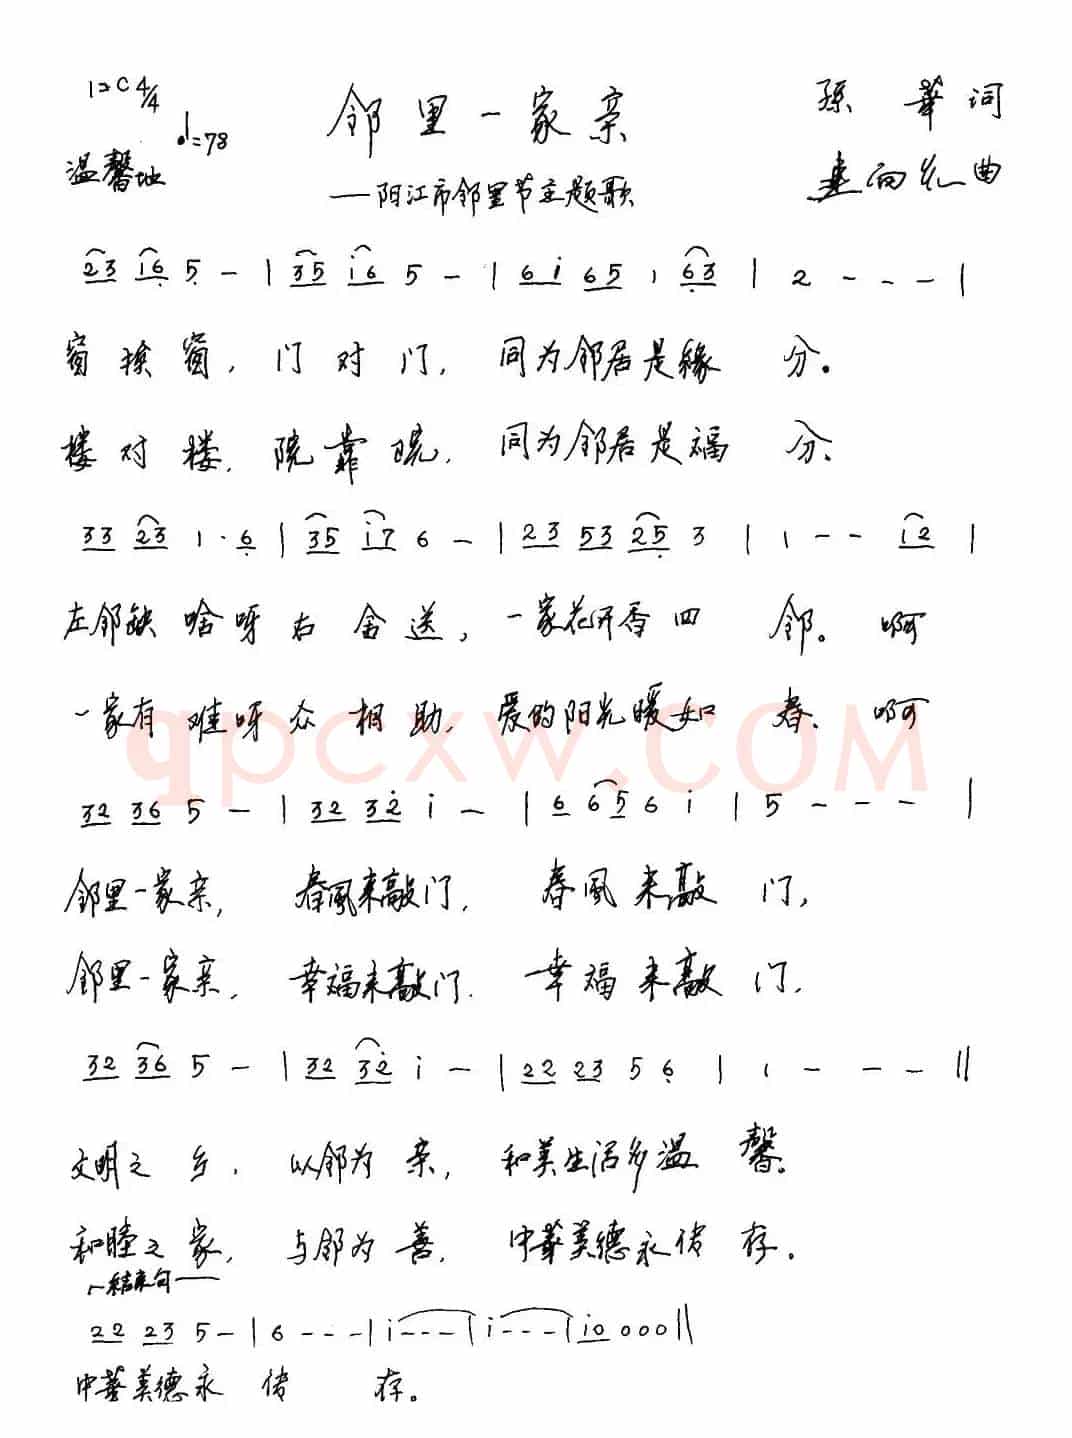 1=C 4/4
♩=78
温馨地
邻里一家亲
——阳江市邻里节主题歌
孫 華 词
向 曲
23 16 5 - | 35 i6 5 - | 6i 65 1 63 | 2 - - - |
窗挨窗，门对门，同为邻居是緣分。
楼对楼，院靠院，同为邻居是福分，
33 23 1· 6 | 35 i7 6 - | 23 53 25 3 | 1 - - i2 |
左邻缺啥呀右舍送，一家花开香四邻。啊
一家有难呀众相助，爱的阳光暖如春，啊
qpcxw.COM
32 36 5 - | 32 32 i - | 6 65 6 i | 5 - - - |
邻里一家亲，春風来敲门，春風来敲门，
邻里一家亲，幸福来敲门，幸福来敲门，
32 36 5 - | 32 32 i - | 22 23 5 6 | 1 - - - ||
文明之乡，以邻为亲，和美生活多温馨。
和睦之家，与邻为善，中華美德永传存。
结束句
22 23 5 - | 6 - - - | i - - - | i - - - | i0 0 0 0 ||
中華美德永传存。